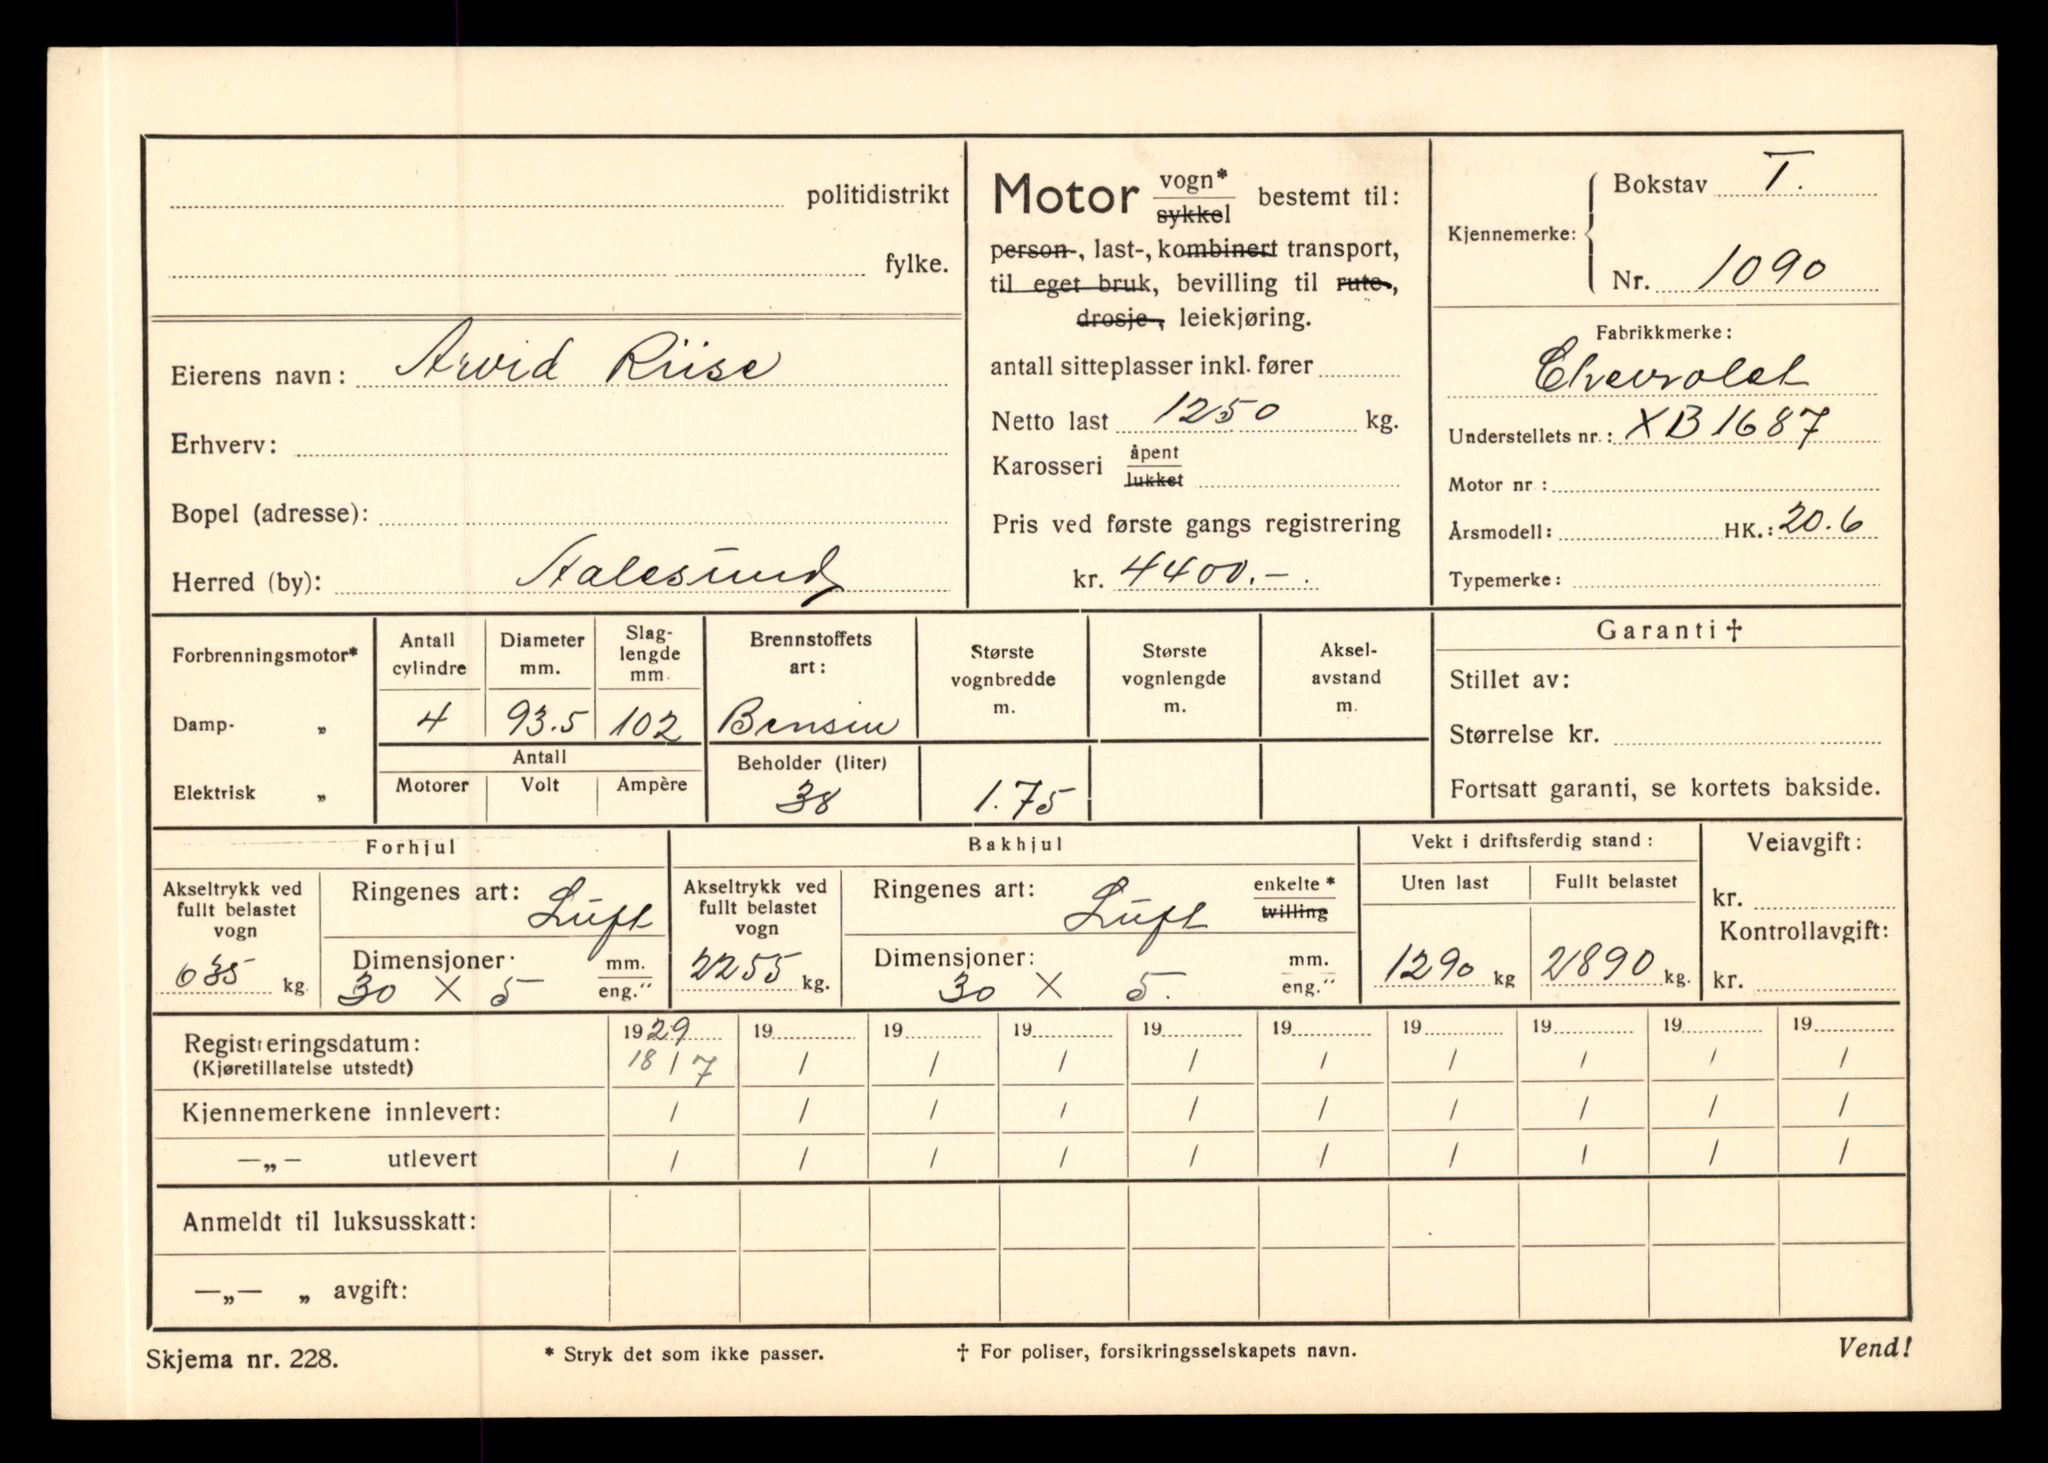 politidistrikt
fylke.
Eierens navn: Arvid Riise
Erhverv:
Bopel (adresse):
Herred (by): Aalesund
Motor vogn* sykkel bestemt til:
person-, last-, kombinert transport,
til eget bruk, bevilling til rute-,
drosje-, leiekjøring.
antall sitteplasser inkl. fører
Netto last 1250 kg.
Karosseri åpent lukket
Pris ved første gangs registrering
kr. 4400.-.
Kjennemerke: Bokstav T.
Nr. 1090
Fabrikkmerke:
Chevrolet
Understellets nr.: XB1687
Motor nr:
Årsmodell: HK.: 20.6
Typemerke:
Forbrenningsmotor*
Damp- „
Elektrisk „
Antall cylindre
Diameter mm.
Slag-lengde mm.
4 93.5 102
Antall
Motorer Volt Ampère
Brennstoffets art:
Bensin
Beholder (liter)
38
Største vognbredde m.
1.75
Største vognlengde m.
Aksel-avstand m.
Garanti †
Stillet av:
Størrelse kr.
Fortsatt garanti, se kortets bakside.
Forhjul
Akseltrykk ved
fullt belastet
vogn
635 kg.
Ringenes art: Luft
Dimensjoner: mm. eng."
30 x 5
Bakhjul
Akseltrykk ved
fullt belastet
vogn
2255 kg.
Ringenes art: Luft enkelte* tvilling
Dimensjoner: mm. eng."
30 x 5.
Vekt i driftsferdig stand:
Uten last Fullt belastet
1290 kg 2890 kg.
Veiavgift:
kr.
Kontrollavgift:
kr.
Registreringsdatum: 1929 19 19 19 19 19 19 19 19 19
(Kjøretillatelse utstedt) 18/7 / / / / / / / / /
Kjennemerkene innlevert: / / / / / / / / / /
—„— utlevert / / / / / / / / / /
Anmeldt til luksusskatt:
—„— „ avgift:
Skjema nr. 228.
* Stryk det som ikke passer.
† For poliser, forsikringsselskapets navn.
Vend!